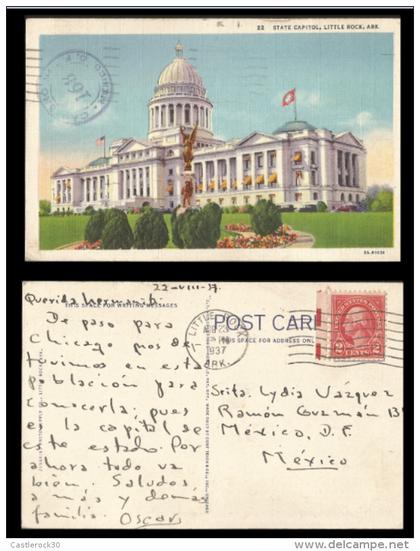 22 STATE CAPITOL, LITTLE ROCK, ARK.
168
22-VIII-37.
Querida hermanita:
THIS SPACE FOR WRITING MESSAGES
De paso para
Chicago nos de-
tuvimos en esta
población para
conocerla, pues
es la capital de
este estado. Por
ahora todo va
bien. Saludos
a más y demás
familia. Oscar
LITTLE ROCK
AUG 23
PM
1937
ARK.
POST CARD
THIS SPACE FOR ADDRESS ONLY
UNITED STATES POSTAGE
2 CENTS 2
Srita. Lydia Vázquez
Ramón Guzmán
México, D. F.
México
© Castlerock30
www.delcampe.net